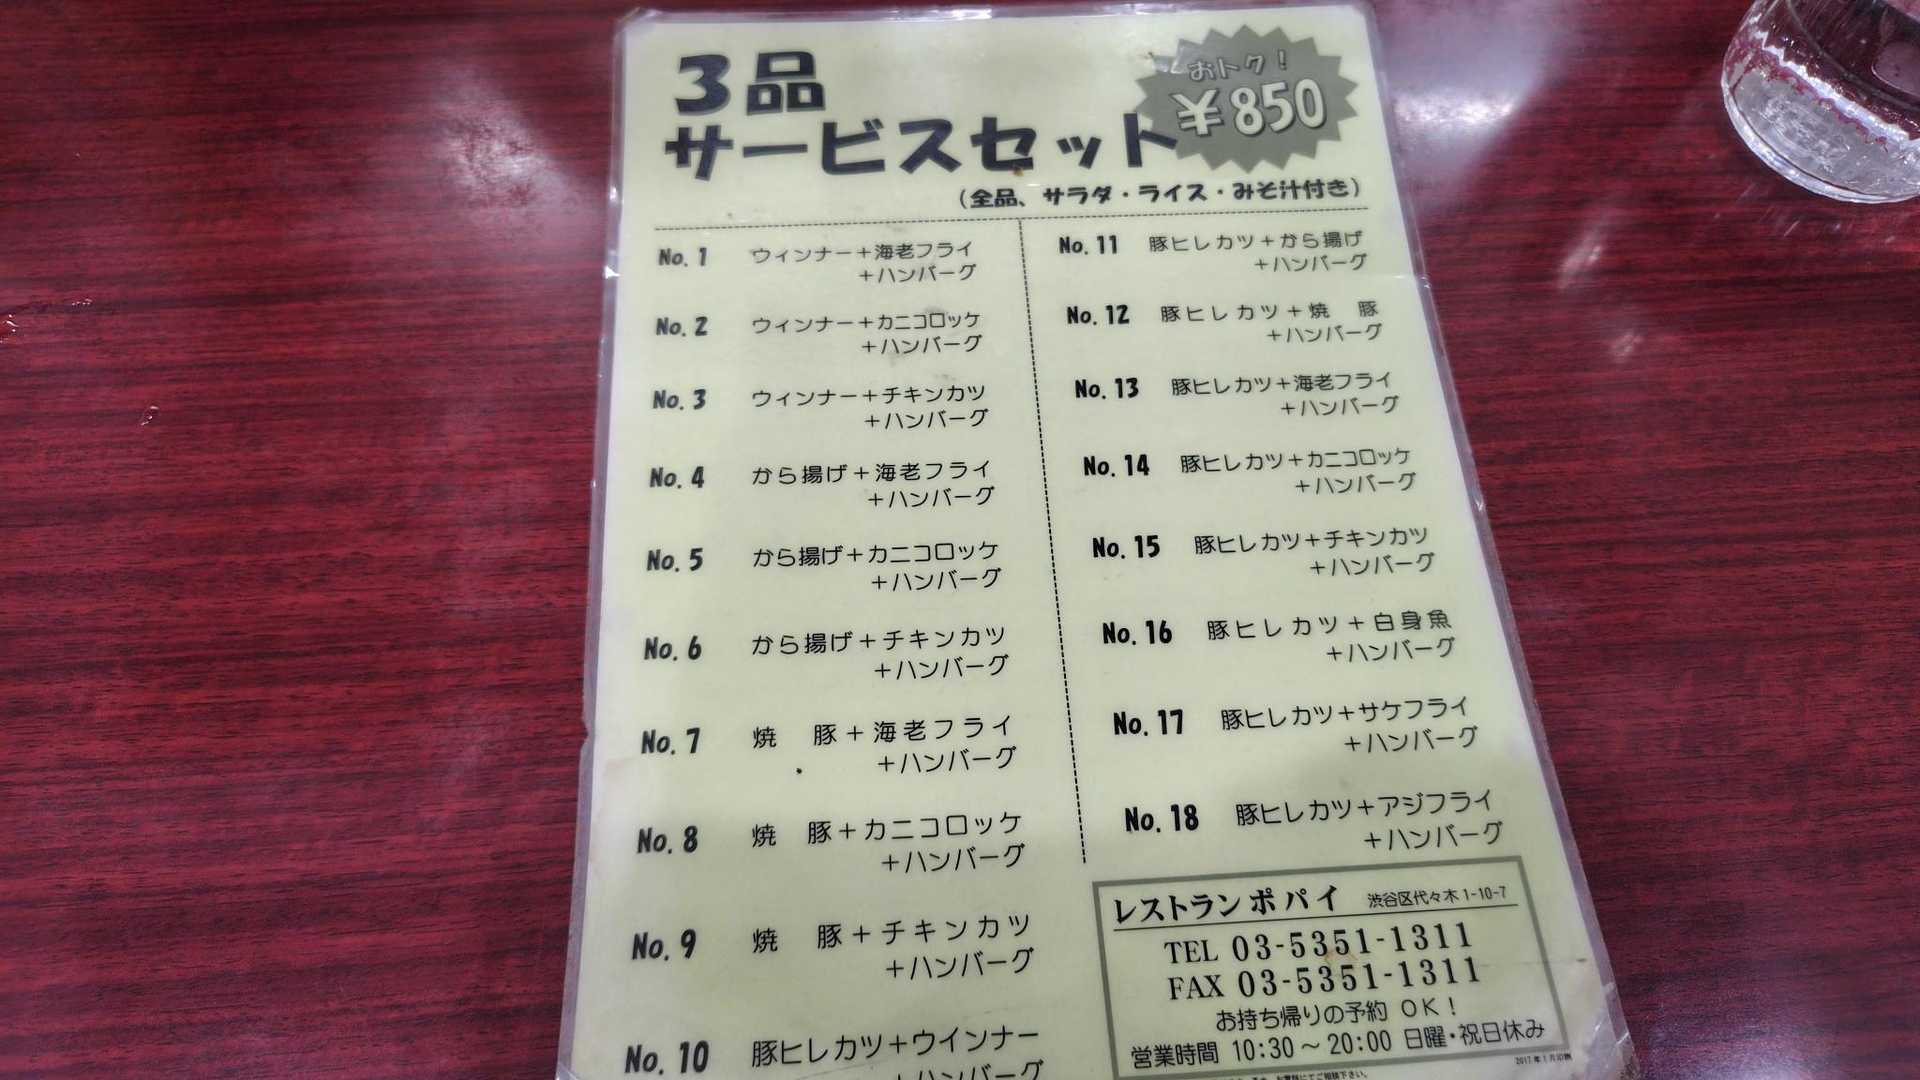 3品
サービスセット
おトク!
¥850
(全品、サラダ・ライス・みそ汁付き)
No.1 ウィンナー+海老フライ
+ハンバーグ
No.2 ウィンナー+カニコロッケ
+ハンバーグ
No.3 ウィンナー+チキンカツ
+ハンバーグ
No.4 から揚げ+海老フライ
+ハンバーグ
No.5 から揚げ+カニコロッケ
+ハンバーグ
No.6 から揚げ+チキンカツ
+ハンバーグ
No.7 焼 豚+海老フライ
+ハンバーグ
No.8 焼 豚+カニコロッケ
+ハンバーグ
No.9 焼 豚+チキンカツ
+ハンバーグ
No.10 豚ヒレカツ+ウインナー
+ハンバーグ
No.11 豚ヒレカツ+から揚げ
+ハンバーグ
No.12 豚ヒレカツ+焼 豚
+ハンバーグ
No.13 豚ヒレカツ+海老フライ
+ハンバーグ
No.14 豚ヒレカツ+カニコロッケ
+ハンバーグ
No.15 豚ヒレカツ+チキンカツ
+ハンバーグ
No.16 豚ヒレカツ+白身魚
+ハンバーグ
No.17 豚ヒレカツ+サケフライ
+ハンバーグ
No.18 豚ヒレカツ+アジフライ
+ハンバーグ
レストランポパイ 渋谷区代々木1-10-7
TEL 03-5351-1311
FAX 03-5351-1311
お持ち帰りの予約 OK!
営業時間 10:30～20:00 日曜・祝日休み
2017年1月印刷